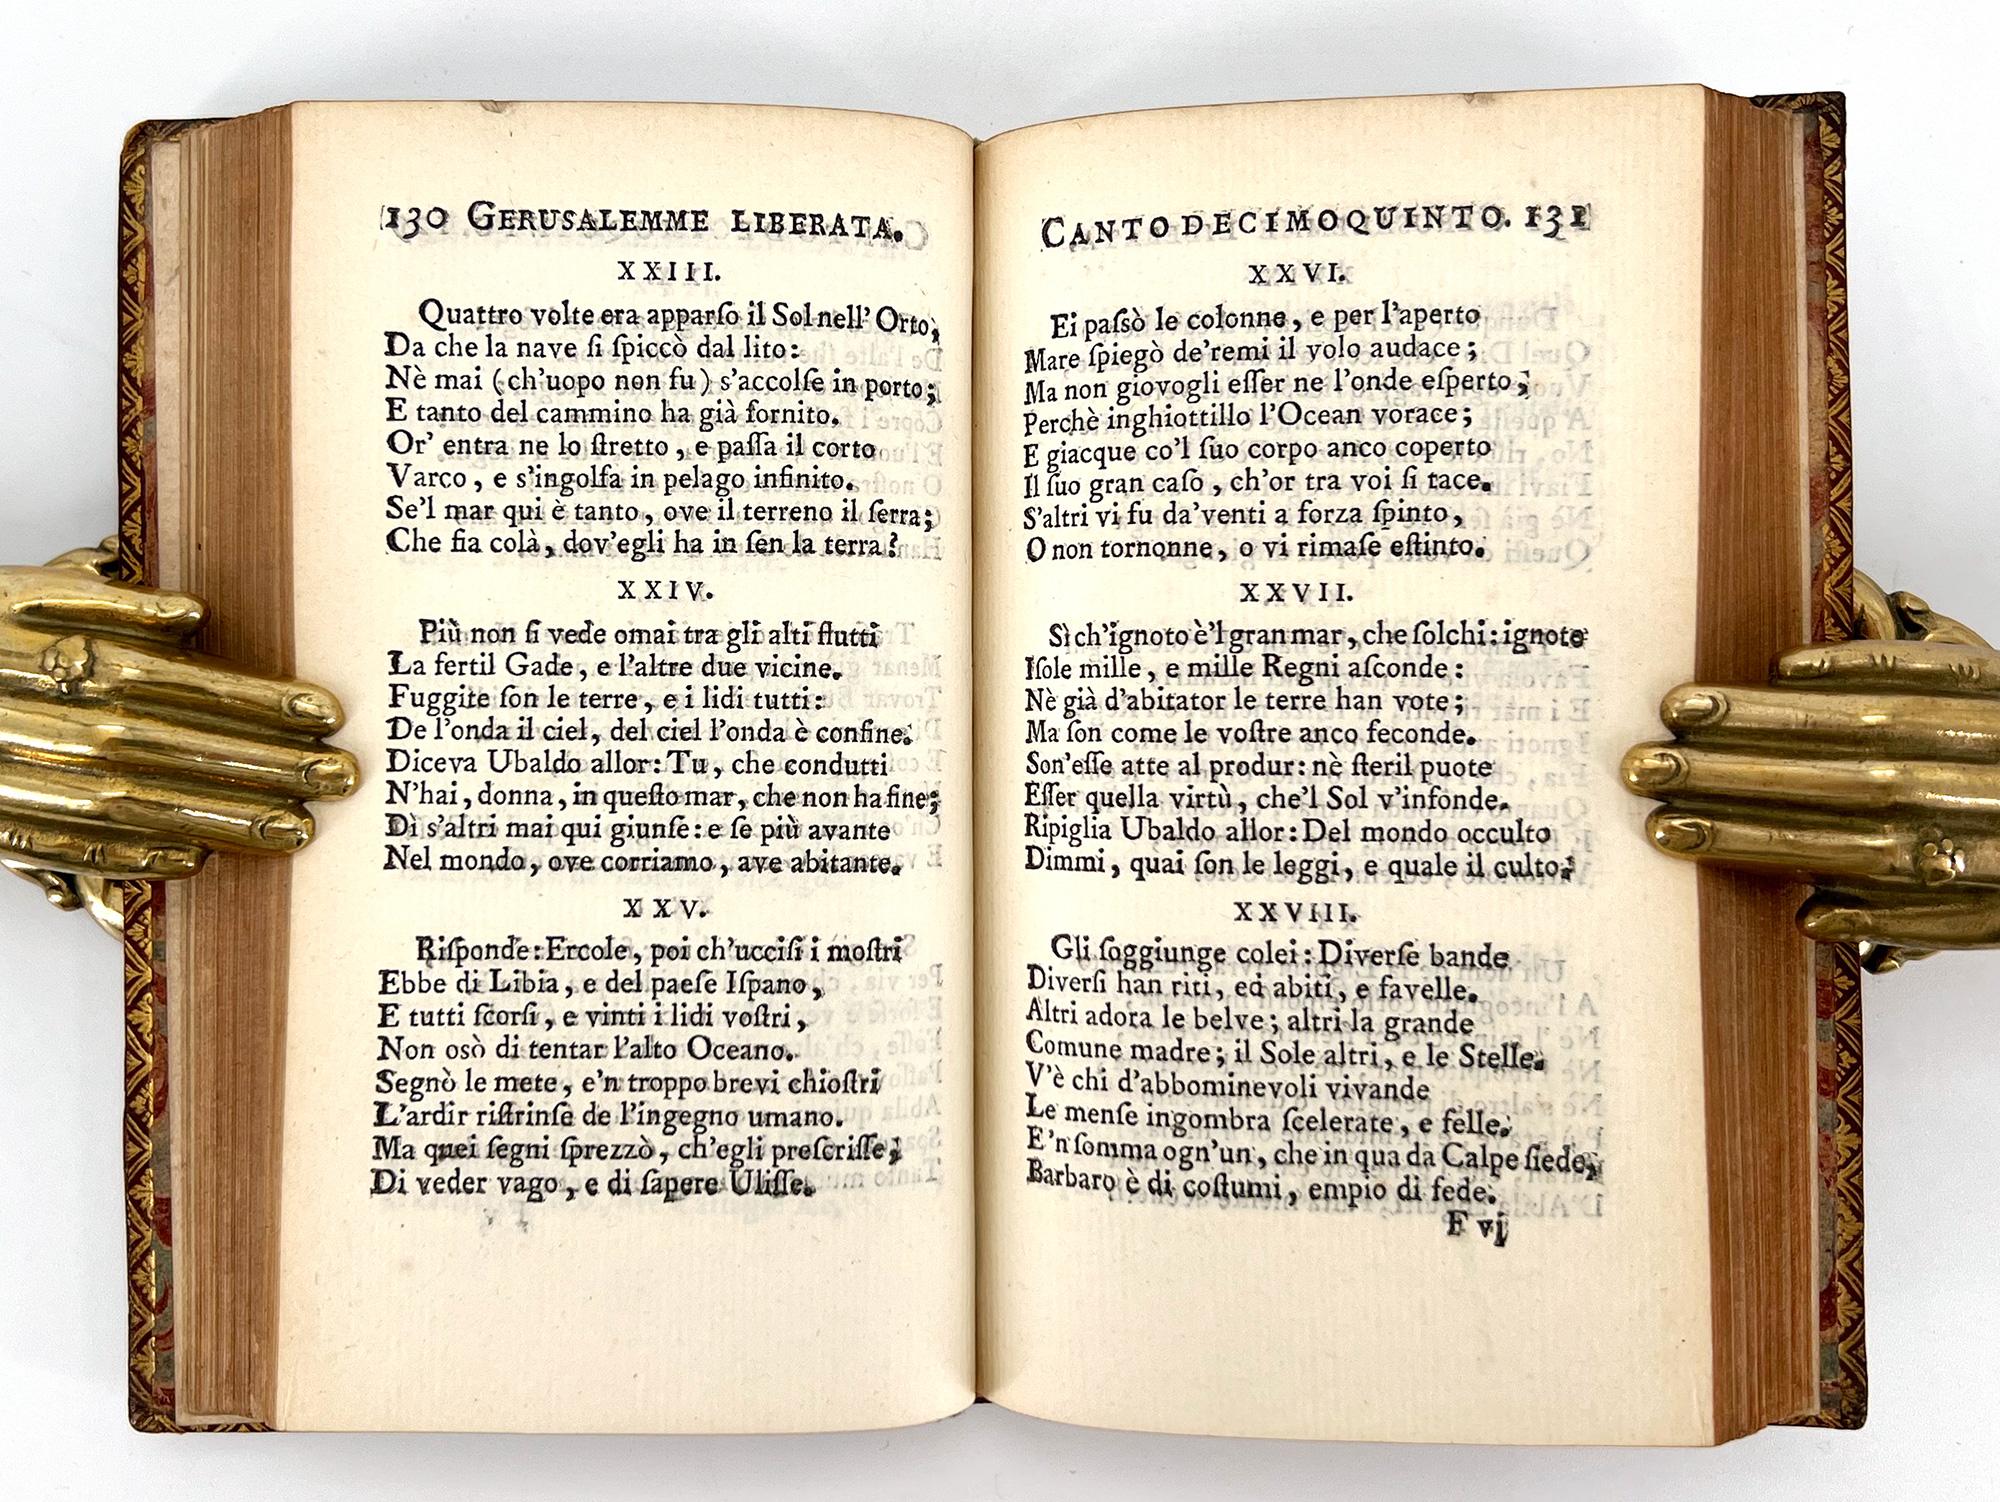 130 GERUSALEMME LIBERATA.
XXIII.
Quattro volte era apparſo il Sol nell' Orto,
Da che la nave ſi ſpiccò dal lito:
Nè mai (ch'uopo non fu) s'accolſe in porto;
E tanto del cammino ha già fornito.
Or' entra ne lo ſtretto, e paſſa il corto
Varco, e s'ingolfa in pelago infinito.
Se'l mar qui è tanto, ove il terreno il ſerra;
Che fia colà, dov'egli ha in ſen la terra?
XXIV.
Più non ſi vede omai tra gli alti flutti
La fertil Gade, e l'altre due vicine.
Fuggite ſon le terre, e i lidi tutti:
De l'onda il ciel, del ciel l'onda è confine.
Diceva Ubaldo allor: Tu, che condutti
N'hai, donna, in queſto mar, che non ha fine;
Dì s'altri mai qui giunſe: e ſe più avante
Nel mondo, ove corriamo, ave abitante.
XXV.
Riſponde: Ercole, poi ch'ucciſi i moſtri
Ebbe di Libia, e del paeſe Iſpano,
E tutti ſcorſi, e vinti i lidi voſtri,
Non osò di tentar l'alto Oceano.
Segnò le mete, e'n troppo brevi chioſtri
L'ardir riſtrinſe de l'ingegno umano.
Ma quei ſegni ſprezzò, ch'egli preſcriſſe,
Di veder vago, e di ſapere Uliſſe.
CANTO DECIMOQUINTO. 131
XXVI.
Ei paſsò le colonne, e per l'aperto
Mare ſpiegò de'remi il volo audace;
Ma non giovogli eſſer ne l'onde eſperto;
Perchè inghiottillo l'Ocean vorace;
E giacque co'l ſuo corpo anco coperto
Il ſuo gran caſo, ch'or tra voi ſi tace.
S'altri vi fu da'venti a forza ſpinto,
O non tornonne, o vi rimaſe eſtinto.
XXVII.
Sì ch'ignoto è'l gran mar, che ſolchi: ignote
Iſole mille, e mille Regni aſconde:
Nè già d'abitator le terre han vote;
Ma ſon come le voſtre anco feconde.
Son'eſſe atte al produr: nè ſteril puote
Eſſer quella virtù, che'l Sol v'infonde.
Ripiglia Ubaldo allor: Del mondo occulto
Dimmi, quai ſon le leggi, e quale il culto;
XXVIII.
Gli ſoggiunge colei: Diverſe bande
Diverſi han riti, ed abiti, e favelle.
Altri adora le belve; altri la grande
Comune madre; il Sole altri, e le Stelle.
V'è chi d'abbominevoli vivande
Le menſe ingombra ſcelerate, e felle.
E'n ſomma ogn'un, che in qua da Calpe ſiede,
Barbaro è di coſtumi, empio di fede.
F vj